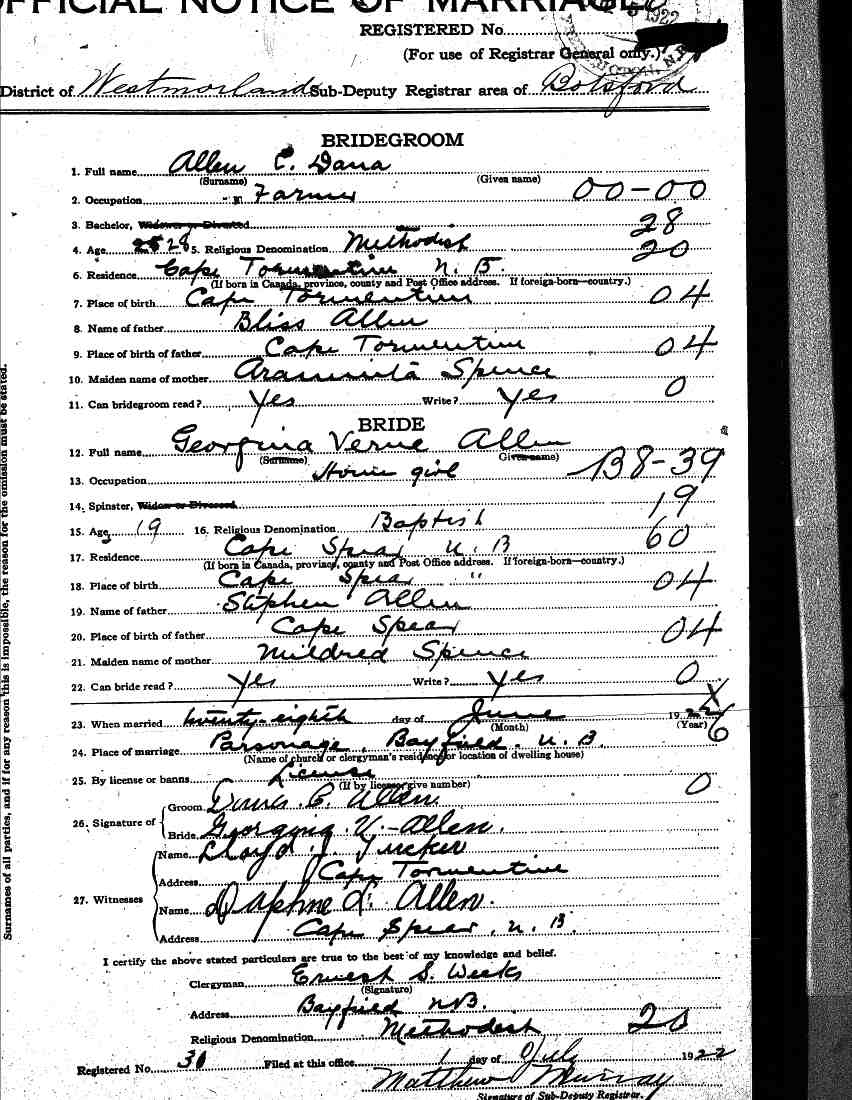 OFFICIAL NOTICE OF MARRIAGE
1922
REGISTERED No.
(For use of Registrar General only.)
District of Westmorland Sub-Deputy Registrar area of Botsford
BRIDEGROOM
1. Full name Allen C. Dana
(Surname) (Given name)
2. Occupation Farmer 00-00
3. Bachelor, Widower or Divorced 28
4. Age 28 5. Religious Denomination Methodist 20
6. Residence Cape Tormentine N. B.
(If born in Canada, province, county and Post Office address. If foreign-born—country.)
7. Place of birth Cape Tormentine 04
8. Name of father Bliss Allen
9. Place of birth of father Cape Tormentine 04
10. Maiden name of mother Araminta Spence
11. Can bridegroom read? Yes Write? Yes 0
BRIDE
12. Full name Georgina Verne Allen
(Surname) Given name)
13. Occupation Home girl 138-39
14. Spinster, Widow or Divorced 19
15. Age 19 16. Religious Denomination Baptist 60
17. Residence Cape Spear N. B
(If born in Canada, province, county and Post Office address. If foreign-born—country.)
18. Place of birth Cape Spear " 04
19. Name of father Stephen Allen
20. Place of birth of father Cape Spear 04
21. Maiden name of mother Mildred Spence
22. Can bride read? Yes Write? Yes 0
23. When married twenty-eighth day of June 1922
(Month) (Year) 6
24. Place of marriage Parsonage, Bayfield. N. B.
(Name of church or clergyman's residence or location of dwelling house)
25. By license or banns License 0
(If by license give number)
26. Signature of
Groom C. Allen
Bride Georgina V. Allen.
27. Witnesses
Name Lloyd J. Tucker
Address Cape Tormentine
Name Daphne L. Allen.
Address Cape Spear, N. B.
I certify the above stated particulars are true to the best of my knowledge and belief.
Clergyman Ernest S. Weeks
(Signature)
Address Bayfield N.B.
Religious Denomination Methodist 20
Registered No. 30 Filed at this office 1 day of July 1922
Matthew Murray
Signature of Sub-Deputy Registrar.
Surnames of all parties, and if for any reason this is impossible, the reason for the omission must be stated.